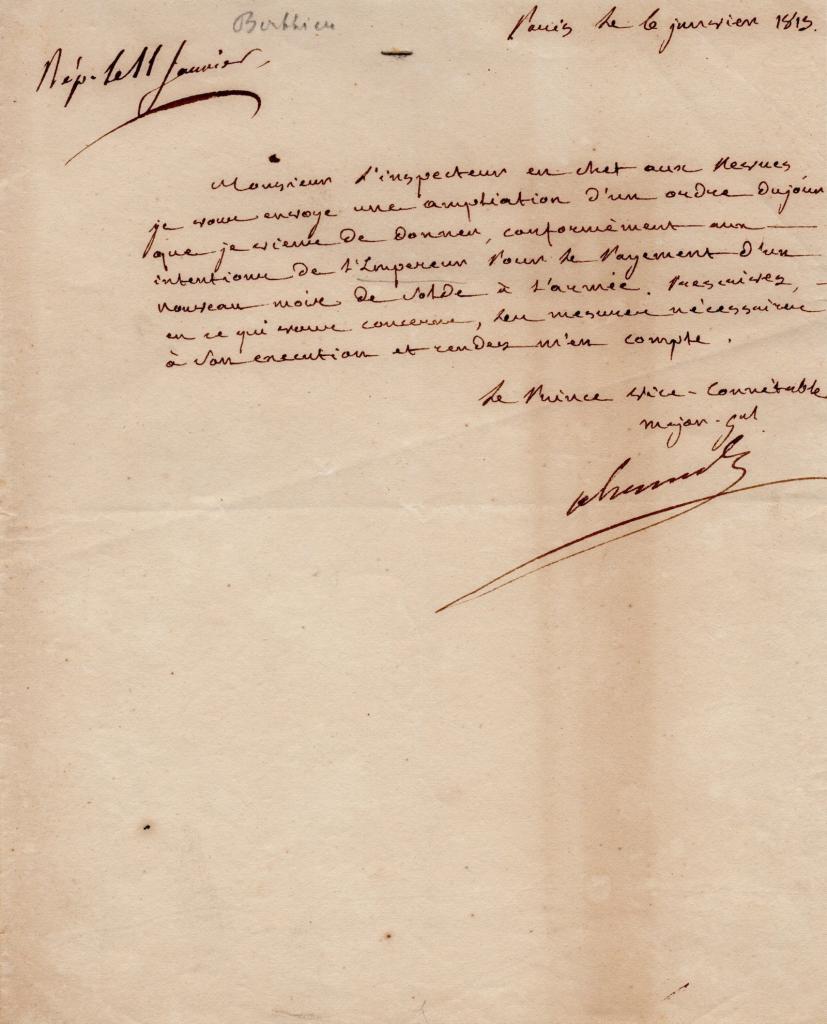 Berthier
Paris le 6 janvier 1813.
Rép. le 11 Janvier
Monsieur l'inspecteur en chef aux Revues,
je vous envoye une ampliation d'un ordre du jour
que je viens de donner, conformément aux
intentions de l'Empereur pour le Payement d'un
nouveau mois de solde à l'armée. Prescrivez,
en ce qui vous concerne, les mesures nécessaires
à son execution et rendez m'en compte.
Le Prince Vice-Connétable
major-gal